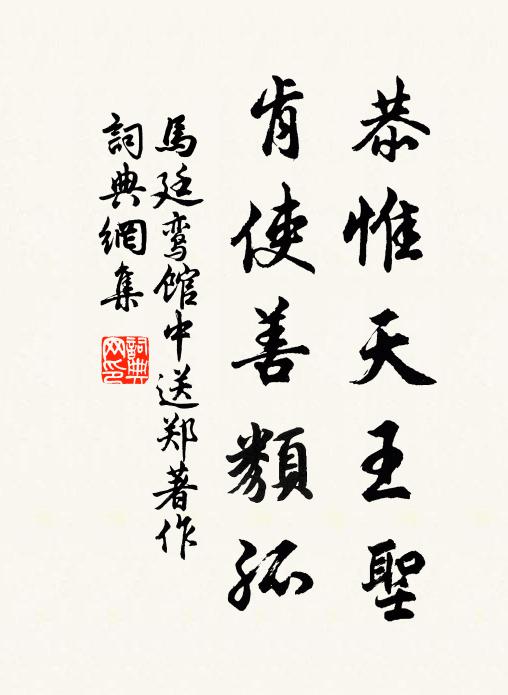 恭惟天王聖
肯使善類孤
馬廷鸾館中送郑著作
詞典網集
詞典网印